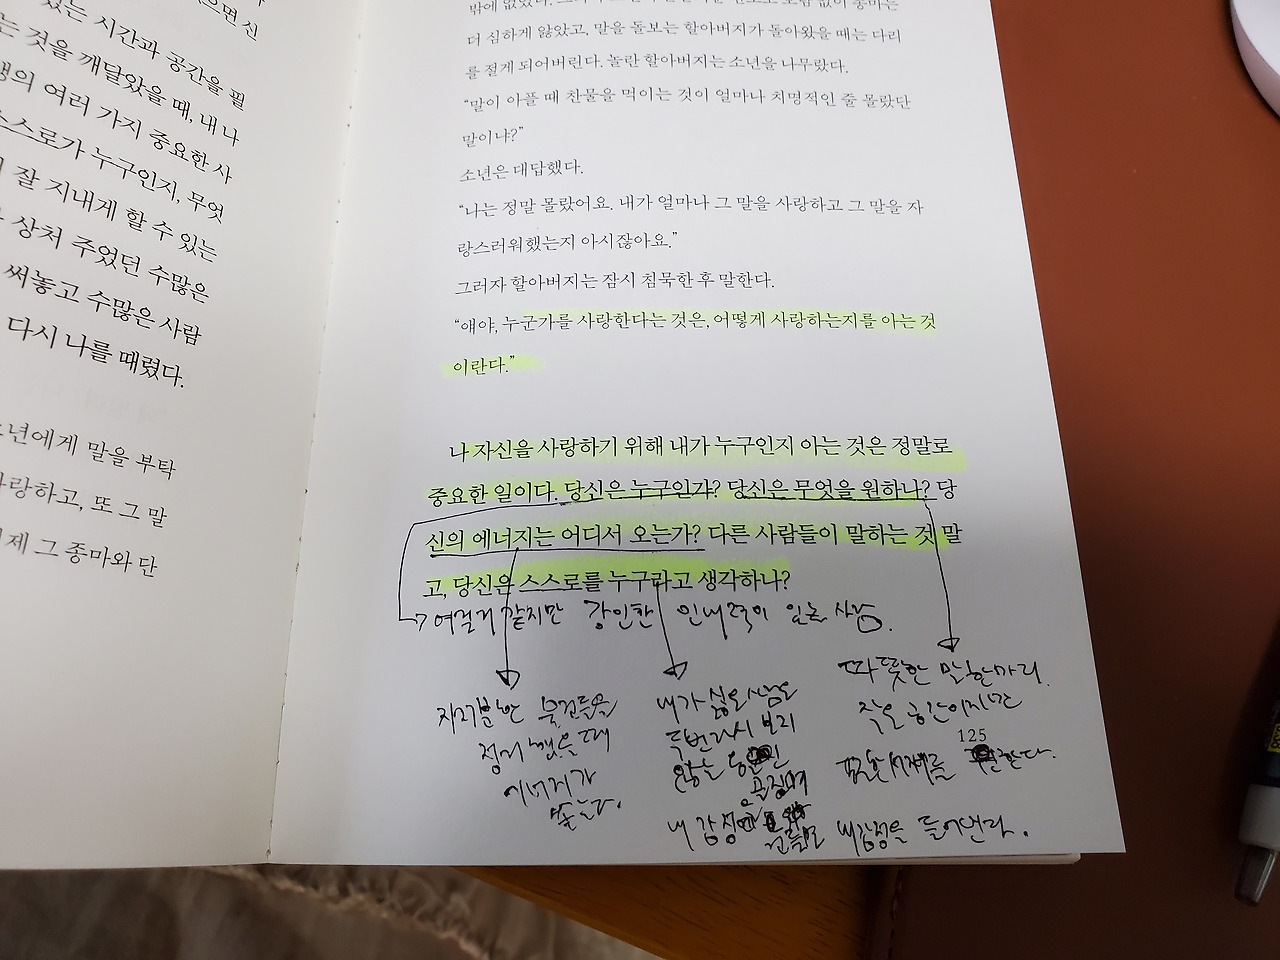 으면 신
있는 시간과 공간을 필
는 것을 깨달았을 때, 내 나
생의 여러 가지 중요한 사
스스로가 누구인지, 무엇
잘 지내게 할 수 있는
상처 주었던 수많은
써놓고 수많은 사람
다시 나를 때렸다.
소년에게 말을 부탁
사랑하고, 또 그 말
그 종마와 단
밖에 없었다.
더 심하게 앓았고, 말을 돌보는 할아버지가 돌아왔을 때는 다리
를 절게 되어버린다. 놀란 할아버지는 소년을 나무랐다.
“말이 아플 때 찬물을 먹이는 것이 얼마나 치명적인 줄 몰랐단
말이냐?”
소년은 대답했다.
“나는 정말 몰랐어요. 내가 얼마나 그 말을 사랑하고 그 말을 자
랑스러워했는지 아시잖아요.”
그러자 할아버지는 잠시 침묵한 후 말한다.
“얘야, 누군가를 사랑한다는 것은, 어떻게 사랑하는지를 아는 것
이란다.”
나 자신을 사랑하기 위해 내가 누구인지 아는 것은 정말로
중요한 일이다. 당신은 누구인가? 당신은 무엇을 원하나? 당
신의 에너지는 어디서 오는가? 다른 사람들이 말하는 것 말
고, 당신은 스스로를 누구라고 생각하나?
여릴거 같지만 강인한 인내력이 있는 사람.
지저분한 물건들을
정리 했을 때
에너지가
솟는다.
내가 싫은 사람은
두번다시 보지
않는
내 감정
따뜻한 말한마디.
작은 공간이지만
125
내감정을